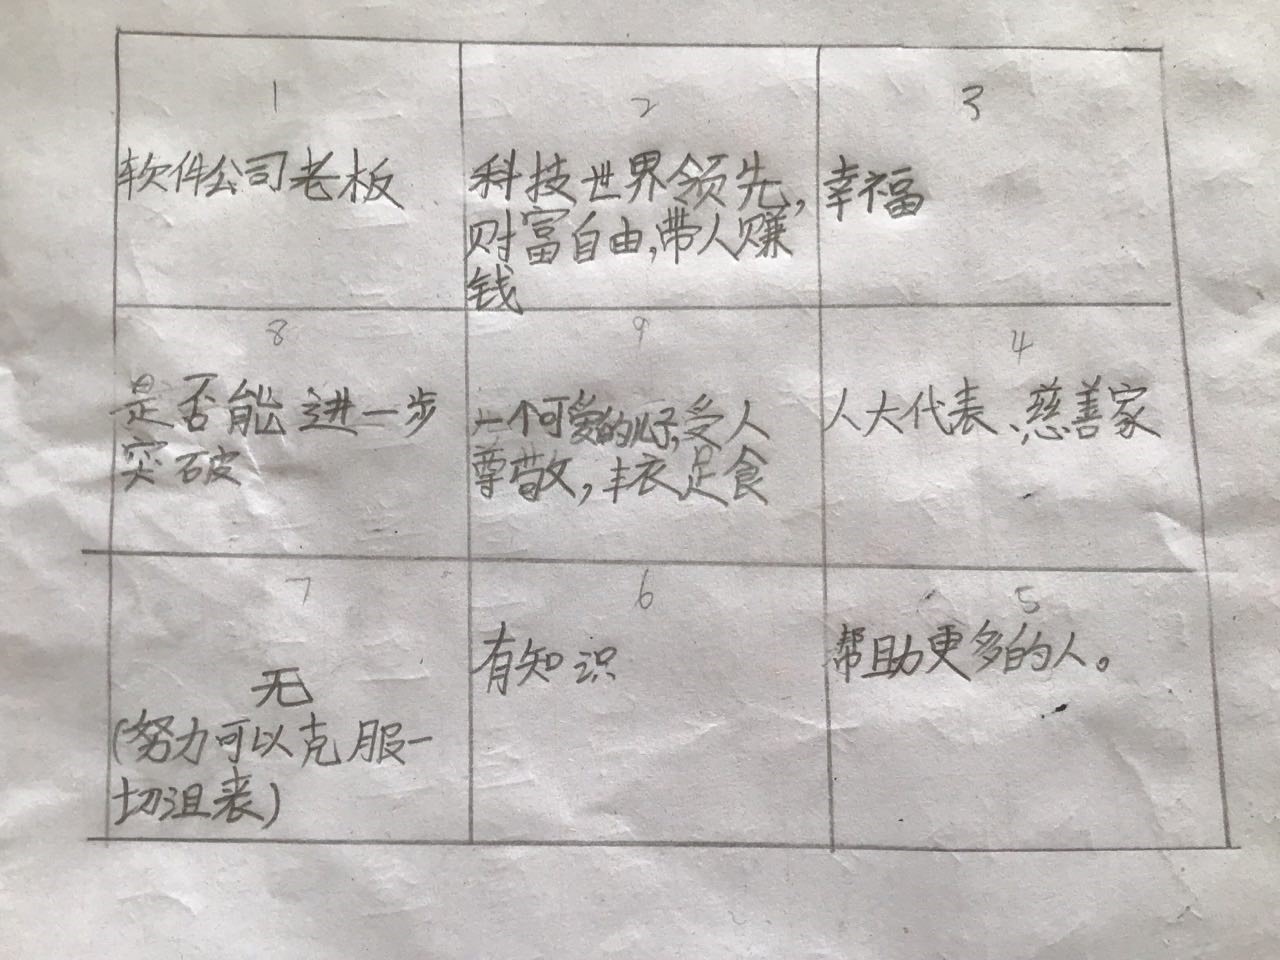 1
软件公司老板
2
科技世界领先,
财富自由,带人赚
钱
3
幸福
8
是否能进一步
突破
9
一个可爱的儿子,受人
尊敬,丰衣足食
4
人大代表、慈善家
7
无
(努力可以克服一
切沮丧)
6
有知识
5
帮助更多的人。